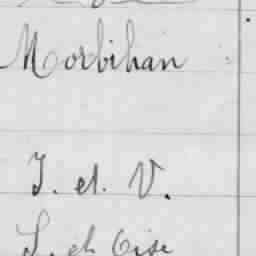 Morbihan
I. et. V.
S. et Oise